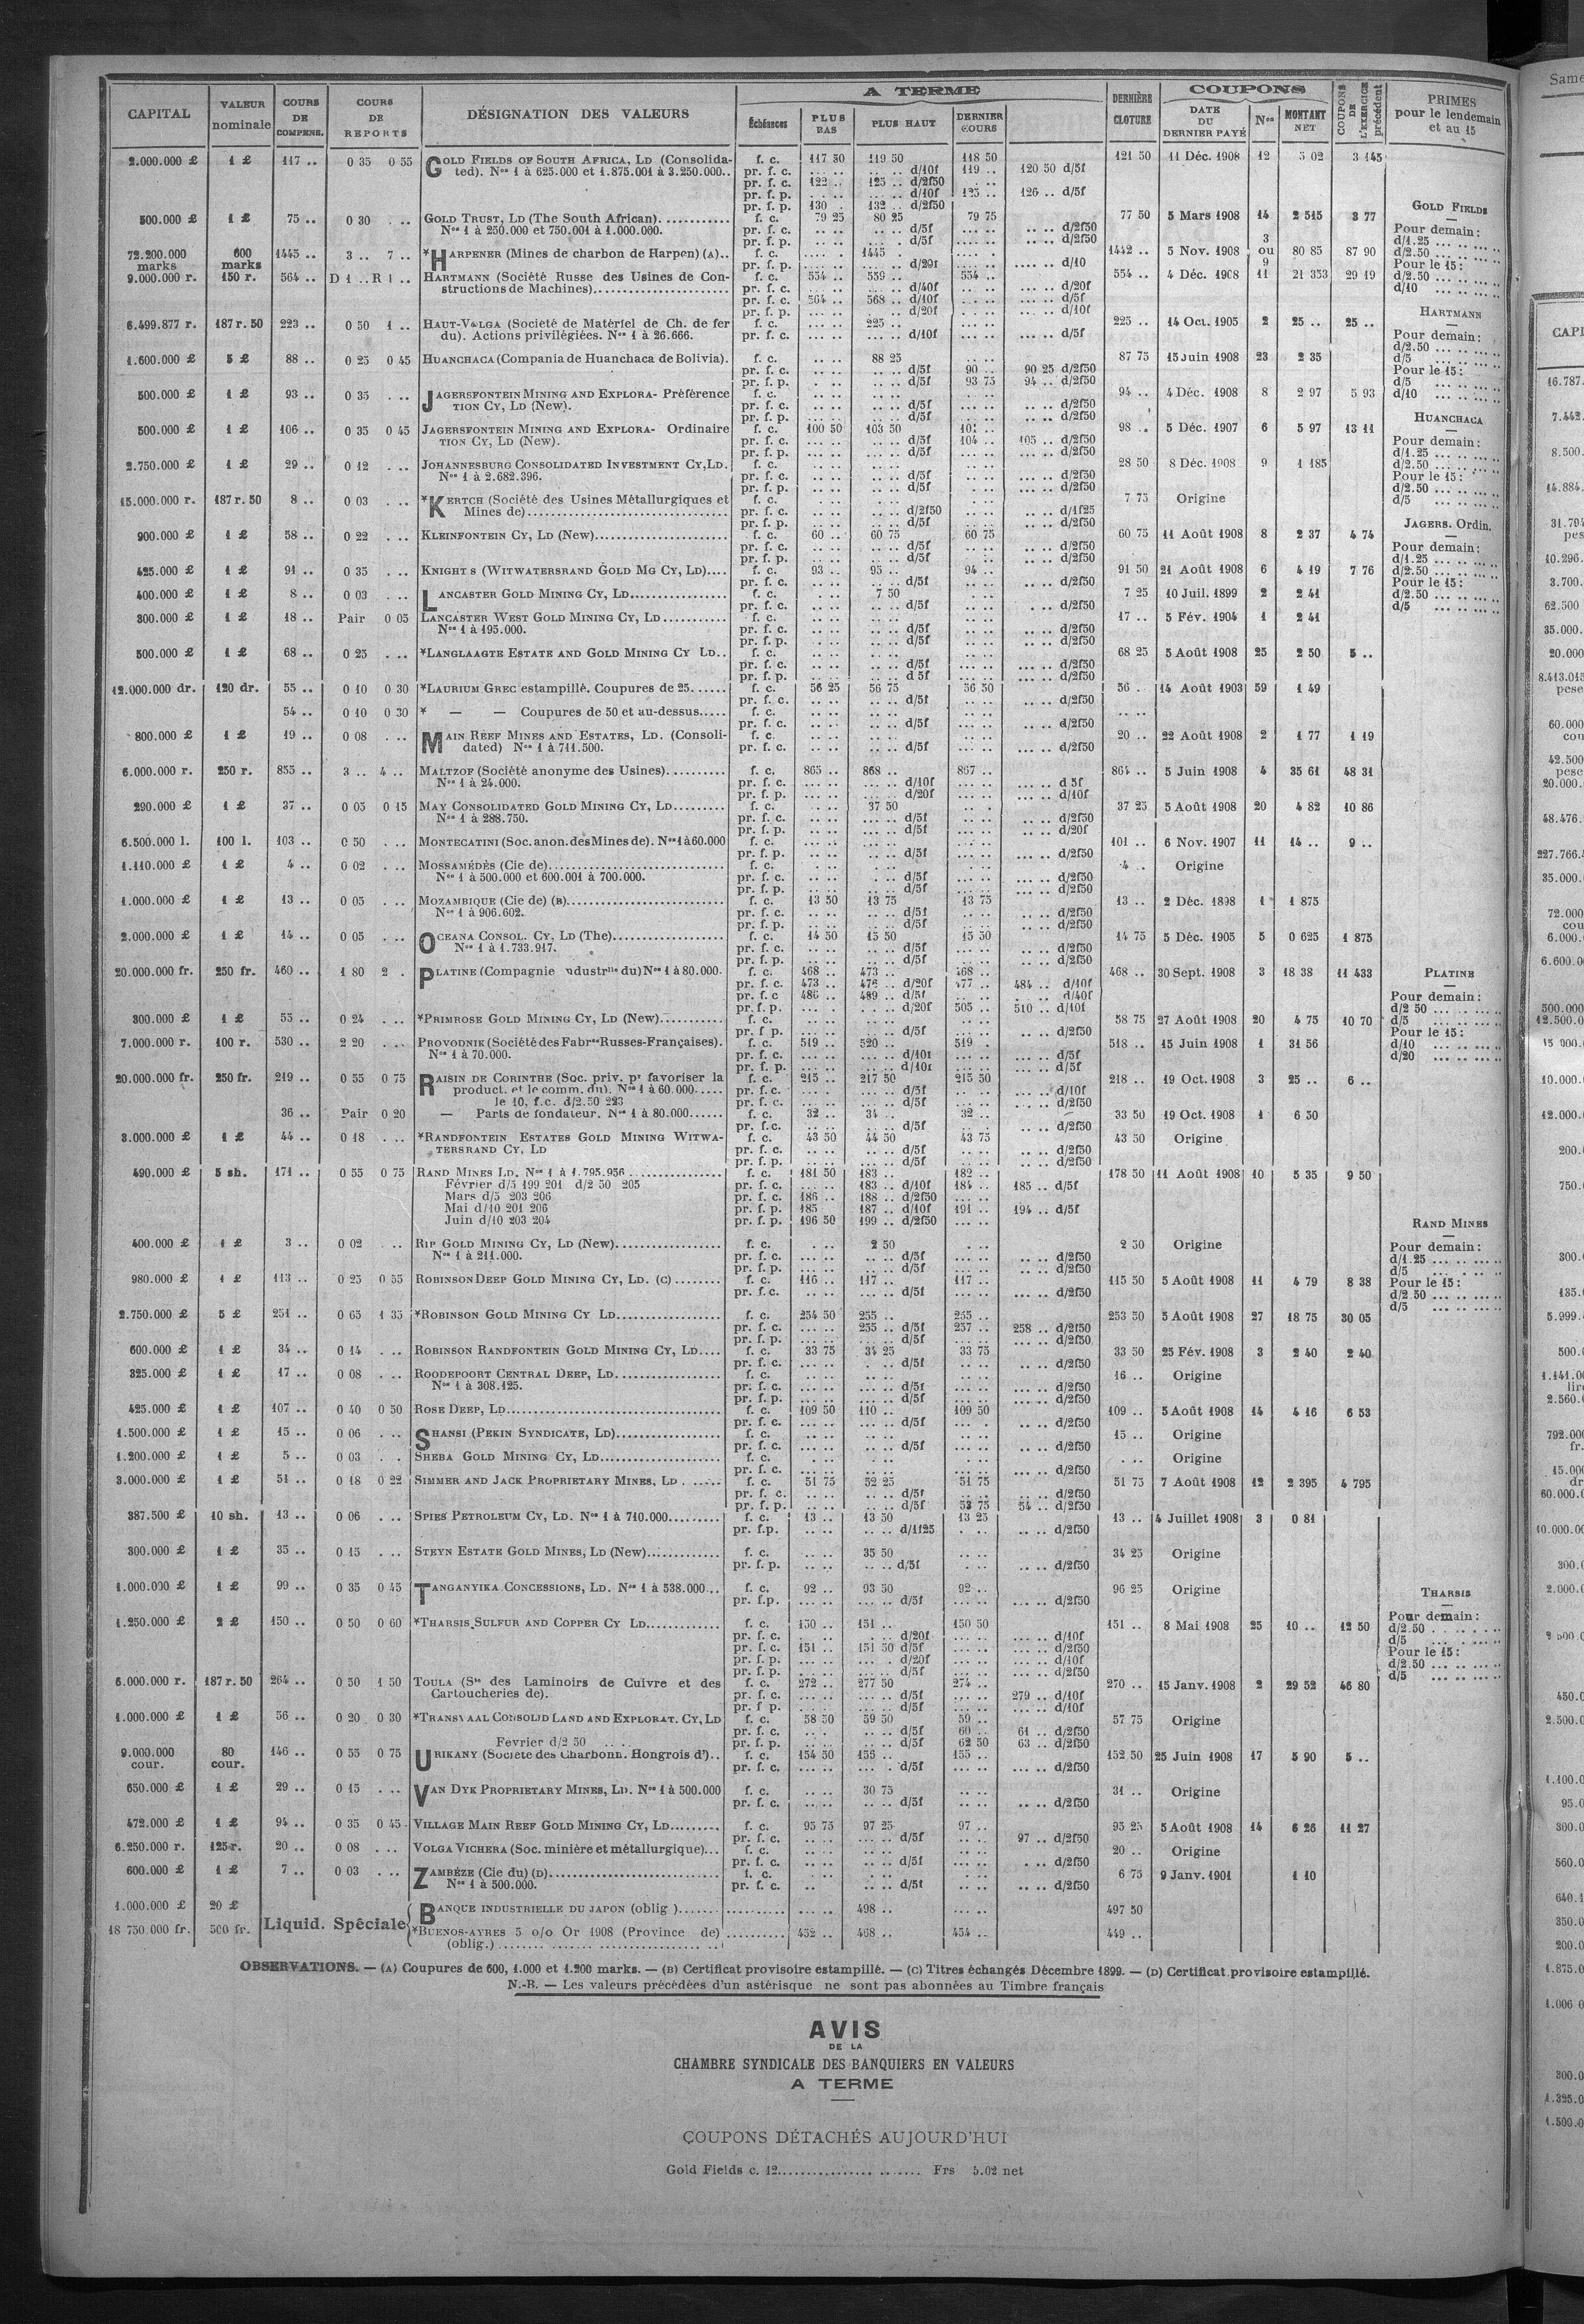 CAPITAL | VALEUR nominale | COURS DE COMPENS. | COURS DE REPORTS | DÉSIGNATION DES VALEURS | A TERME | DERNIÈRE CLOTURE | COUPONS | COUPONS DE L'EXERCICE précédent | PRIMES pour le lendemain et au 15
Échéances | PLUS BAS | PLUS HAUT | DERNIER COURS | DATE DU DERNIER PAYÉ | Nos | MONTANT NET
2.000.000 £ 1 £ 117 .. 0 35 0 55 GOLD FIELDS OF SOUTH AFRICA, LD (Consolida- f. c. 117 50 119 50 118 50 121 50 11 Déc. 1908 12 5 02 3 145
ted). Nos 1 à 625.000 et 1.875.001 à 3.250.000.. pr. f. c. .. .. d/10f 119 .. 120 50 d/5f
pr. f. c. 122 .. 125 .. d/2f50
pr. f. p. .. .. d/10f 125 .. 126 .. d/5f
pr. f. p. 130 . 132 .. d/2f50
500.000 £ 1 £ 75 .. 0 30 . .. GOLD TRUST, LD (The South African). f. c. 79 25 80 25 79 75 77 50 5 Mars 1908 14 2 515 3 77
Nos 1 à 250.000 et 750.001 à 1.000.000. pr. f. c. d/5f d/2f50
pr. f. p. d/5f d/2f50
72.200.000 marks 600 marks 1445 .. 3 .. 7 .. *HARPENER (Mines de charbon de Harpen) (A).. f. c. 1445 . 1442 .. 5 Nov. 1908 3 ou 9 80 85 87 90
pr. f. p. d/20f d/10
9.000.000 r. 150 r. 564 .. D 1 .. R 1 .. HARTMANN (Société Russe des Usines de Con- f. c. 554 .. 559 .. 554 .. 554 .. 4 Déc. 1908 11 21 353 29 19
structions de Machines) pr. f. c. d/40f d/20f
pr. f. c. 564 .. 568 .. d/10f d/5f
pr. f. p. d/20f d/10f
6.499.877 r. 187 r. 50 223 .. 0 50 1 .. HAUT-VOLGA (Societé de Matériel de Ch. de fer f. c. 225 .. 225 .. 14 Oct. 1905 2 25 .. 25 ..
du). Actions privilégiées. Nos 1 à 26.666. pr. f. c. d/10f d/5f
1.600.000 £ 5 £ 88 .. 0 25 0 45 HUANCHACA (Compania de Huanchaca de Bolivia). f. c. 88 25 87 75 15 Juin 1908 23 2 35
pr. f. c. d/5f 90 .. 90 25 d/2f50
pr. f. p. d/5f 93 75 94 .. d/2f50
500.000 £ 1 £ 93 .. 0 35 . .. JAGERSFONTEIN MINING AND EXPLORA- Préférence f. c. 94 .. 4 Déc. 1908 8 2 97 5 93
TION CY, LD (New). pr. f. c. d/5f d/2f50
pr. f. p. d/5f d/2f50
500.000 £ 1 £ 106 .. 0 35 0 45 JAGERSFONTEIN MINING AND EXPLORA- Ordinaire f. c. 100 50 103 50 98 .. 5 Déc. 1907 6 5 97 13 11
TION CY, LD (New). pr. f. c. d/5f 104 .. 105 .. d/2f50
pr. f. p. d/5f d/2f50
2.750.000 £ 1 £ 29 .. 0 12 . .. JOHANNESBURG CONSOLIDATED INVESTMENT CY, LD. f. c. 28 50 8 Déc. 1908 9 1 185
Nos 1 à 2.682.396. pr. f. c. d/5f d/2f50
pr. f. p. d/5f d/2f50
15.000.000 r. 187 r. 50 8 .. 0 03 . .. *KERTCH (Société des Usines Métallurgiques et f. c. 7 75 Origine
Mines de) pr. f. c. d/2f50 d/1f25
pr. f. p. d/5f d/2f50
900.000 £ 1 £ 58 .. 0 22 . .. KLEINFONTEIN CY, LD (New) f. c. 60 .. 60 75 60 75 60 75 11 Août 1908 8 2 37 4 74
pr. f. c. d/5f d/2f50
pr. f. p. d/5f d/2f50
425.000 £ 1 £ 91 .. 0 35 . .. KNIGHT S (WITWATERSRAND GOLD MG CY, LD).... f. c. 93 .. 95 .. 94 .. 91 50 21 Août 1908 6 4 19 7 76
pr. f. c. d/5f d/2f50
400.000 £ 1 £ 8 .. 0 03 . .. LANCASTER GOLD MINING CY, LD f. c. 7 50 7 25 10 Juil. 1899 2 2 41
pr. f. c. d/5f d/2f50
300.000 £ 1 £ 18 .. Pair 0 05 LANCASTER WEST GOLD MINING CY, LD f. c. 17 .. 5 Fév. 1904 1 2 41
Nos 1 à 195.000. pr. f. c. d/5f d/2f50
pr. f. p. d/5f d/2f50
500.000 £ 1 £ 68 .. 0 25 . .. *LANGLAAGTE ESTATE AND GOLD MINING CY LD.. f. c. 68 25 5 Août 1908 25 2 50 5 ..
pr. f. c. d/5f d/2f50
pr. f. p. d 5f d/2f50
12.000.000 dr. 120 dr. 55 .. 0 10 0 30 *LAURIUM GREC estampillé. Coupures de 25 f. c. 56 25 56 75 56 50 56 .. 14 Août 1903 59 1 49
pr. f. c. d/5f d/2f50
54 .. 0 10 0 30 * — — Coupures de 50 et au-dessus..... f. c.
pr. f. c. d/5f d/2f50
800.000 £ 1 £ 19 .. 0 08 . .. MAIN REEF MINES AND ESTATES, LD. (Consoli- f. c. 20 .. 22 Août 1908 2 1 77 1 19
dated) Nos 1 à 711.500. pr. f. c. d/5f d/2f50
6.000.000 r. 250 r. 855 .. 3 .. 4 .. MALTZOF (Société anonyme des Usines) f. c. 865 .. 868 .. 867 .. 864 .. 5 Juin 1908 4 35 61 48 31
Nos 1 à 24.000. pr. f. c. d/10f d 5f
pr. f. p. d/20f d/10f
290.000 £ 1 £ 37 .. 0 05 0 15 MAY CONSOLIDATED GOLD MINING CY, LD f. c. 37 50 37 25 5 Août 1908 20 4 82 10 86
Nos 1 à 288.750. pr. f. c. d/5f d/2f50
pr. f. p. d/5f d/20f
6.500.000 l. 100 l. 103 .. 0 50 . .. MONTECATINI (Soc. anon. des Mines de). Nos 1 à 60.000 f. c. 101 .. 6 Nov. 1907 11 14 .. 9 ..
pr. f. p. d/5f d/2f50
1.110.000 £ 1 £ 4 .. 0 02 . .. MOSSAMÉDÈS (Cie de) f. c. 4 .. Origine
Nos 1 à 500.000 et 600.001 à 700.000. pr. f. c. d/5f d/2f50
pr. f. p. d/5f d/2f50
1.000.000 £ 1 £ 13 .. 0 05 . .. MOZAMBIQUE (Cie de) (B) f. c. 13 50 13 75 13 75 13 .. 2 Déc. 1898 1 1 875
Nos 1 à 906.602. pr. f. c. d/5f d/2f50
pr. f. p. d/5f d/2f50
2.000.000 £ 1 £ 14 .. 0 05 . .. OCEANA CONSOL. CY, LD (The) f. c. 14 50 15 50 15 50 14 75 5 Déc. 1905 5 0 625 1 875
Nos 1 à 1.733.917. pr. f. c. d/5f d/2f50
pr. f. p. d/5f d/2f50
20.000.000 fr. 250 fr. 460 .. 1 80 2 . PLATINE (Compagnie ndustrlle du) Nos 1 à 80.000. f. c. 468 .. 473 .. 468 .. 468 .. 30 Sept. 1908 3 18 38 11 433
pr. f. c. 473 .. 476 .. d/20f 477 .. 484 .. d/10f
pr. f. c 486 .. 489 .. d/5f d/40f
pr. f. p. d/20f 505 .. 510 .. d/10f
300.000 £ 1 £ 55 .. 0 24 . .. *PRIMROSE GOLD MINING CY, LD (New) f. c. 58 75 27 Août 1908 20 4 75 10 70
pr. f p. d/5f d/2f50
7.000.000 r. 100 r. 530 .. 2 20 . .. PROVODNIK (Société des Fabres Russes-Françaises). f. c. 519 .. 520 .. 519 . 518 .. 15 Juin 1908 1 31 56
Nos 1 à 70.000. pr. f. c. d/10f d/5f
pr. f. p. d/10f d/5f
20.000.000 fr. 250 fr. 219 .. 0 55 0 75 RAISIN DE CORINTHE (Soc. priv. pr favoriser la f. c. 215 .. 217 50 215 50 218 .. 19 Oct. 1908 3 25 .. 6 ..
product. et le comm. du). Nos 1 à 60.000..... pr. f. c. d/5f d/10f
le 10, f.c. d/2.50 223 pr. f. c. d/5f d/2f50
36 .. Pair 0 20 — Parts de fondateur. Nos 1 à 80.000...... f. c. 32 .. 34 .. 32 .. 33 50 19 Oct. 1908 1 6 30
pr. f.c. d/5f d/2f50
3.000.000 £ 1 £ 44 .. 0 18 . .. *RANDFONTEIN ESTATES GOLD MINING WITWA- f. c. 43 50 44 50 43 75 43 50 Origine
TERSRAND CY, LD pr. f. c. d/5f d/2f50
pr. f. p. d/5f d/2f50
490.000 £ 5 sh. 171 .. 0 55 0 75 RAND MINES LD. Nos 1 à 1.795.956 f. c. 181 50 183 .. 182 .. 178 50 11 Août 1908 10 5 35 9 50
Février d/5 199 201 d/2 50 205 pr. f. c. 183 .. d/10f 184 .. 185 .. d/5f
Mars d/5 203 206 pr. f. c. 186 .. 188 .. d/2f50
Mai d/10 201 206 pr. f. p. 185 187 .. d/10f 191 .. 194 .. d/5f
Juin d/10 203 204 pr. f. p. 196 50 199 .. d/2f50
400.000 £ 1 £ 3 .. 0 02 .. RIP GOLD MINING CY, LD (New) f. c. 2 50 2 50 Origine
Nos 1 à 211.000. pr. f. c. d/5f d/2f50
pr. f. p. d/5f d/2f50
980.000 £ 1 £ 113 .. 0 25 0 55 ROBINSON DEEP GOLD MINING CY, LD. (C) f. c. 116 .. 117 .. 117 .. 115 50 5 Août 1908 11 4 79 8 38
pr. f.c. d/5f d/2f50
2.750.000 £ 5 £ 251 .. 0 65 1 35 *ROBINSON GOLD MINING CY LD f. c. 254 50 255 .. 255 .. 253 50 5 Août 1908 27 18 75 30 05
pr. f. c. 255 .. d/5f 257 .. 258 .. d/2f50
pr. f. p. d/5f d/2f50
600.000 £ 1 £ 34 .. 0 14 . .. ROBINSON RANDFONTEIN GOLD MINING CY, LD.... f. c. 33 75 34 25 33 75 33 50 25 Fév. 1908 3 2 40 2 40
pr. f. c. d/5f d/2f50
325.000 £ 1 £ 17 .. 0 08 . .. ROODEPOORT CENTRAL DEEP, LD f. c. 16 .. Origine
Nos 1 à 308.125. pr. f. c. d/5f d/2f50
pr. f. p. d/5f d/2f50
425.000 £ 1 £ 107 .. 0 40 0 50 ROSE DEEP, LD f. c. 109 50 110 .. 109 50 109 .. 5 Août 1908 14 4 16 6 53
pr. f. c. d/5f d/2f50
1.500.000 £ 1 £ 15 .. 0 06 . .. SHANSI (PEKIN SYNDICATE, LD) f. c. 15 .. Origine
pr. f. c. d/5f d/2f50
1.200.000 £ 1 £ 5 .. 0 03 . . SHEBA GOLD MINING CY, LD f. c. Origine
pr. f. c. d/2f50
3.000.000 £ 1 £ 51 .. 0 18 0 22 SIMMER AND JACK PROPRIETARY MINES, LD f. c. 51 75 52 25 51 75 51 75 7 Août 1908 12 2 395 4 795
pr. f. c. d/5f d/2f50
pr. f. p. d/5f 53 75 54 .. d/2f50
387.500 £ 10 sh. 13 .. 0 06 . .. SPIES PETROLEUM CY, LD. Nos 1 à 710.000 f. c. 13 .. 13 50 13 25 13 .. 4 Juillet 1908 3 0 81
pr. f.p. d/1f25 d/2f50
300.000 £ 1 £ 35 .. 0 15 . .. STEYN ESTATE GOLD MINES, LD (New) f. c. 35 50 34 25 Origine
pr. f. p. d/5f d/2f50
1.000.000 £ 1 £ 99 .. 0 35 0 45 TANGANYIKA CONCESSIONS, LD. Nos 1 à 538.000... f. c. 92 .. 93 50 92 .. 96 25 Origine
pr. f.p. d/5f d/2f50
1.250.000 £ 2 £ 150 .. 0 50 0 60 *THARSIS SULFUR AND COPPER CY LD f. c. 150 .. 151 .. 150 50 151 .. 8 Mai 1908 25 10 .. 12 50
pr. f. c. d/20f d/10f
pr. f. c. 151 .. 151 50 d/5f d/2f50
pr. f. p. d/20f d/10f
pr. f. p. d/5f d/2f50
6.000.000 r. 187 r. 50 264 .. 0 50 1 50 TOULA (Sté des Laminoirs de Cuivre et des f. c. 272 .. 277 50 274 .. 270 .. 15 Janv. 1908 2 29 52 46 80
Cartoucheries de). pr. f. c. d/5f 279 .. d/10f
pr. f p. d/5f d/10f
1.000.000 £ 1 £ 56 .. 0 20 0 30 *TRANSVAAL CONSOLID LAND AND EXPLORAT. CY, LD f. c. 58 50 59 50 59 .. 57 75 Origine
pr. f. c. d/5f 60 .. 61 .. d/2f50
Fevrier d/2 50 pr. f. p. d/5f 62 50 63 .. d/2f50
9.000.000 cour. 80 cour. 146 .. 0 55 0 75 URIKANY (Societe des Charbonn. Hongrois d').. f. c. 154 50 155 .. 155 .. 152 50 25 Juin 1908 17 5 90 5 ..
pr. f. c. d/5f d/2f50
650.000 £ 1 £ 29 .. 0 15 . .. VAN DYK PROPRIETARY MINES, LD. Nos 1 à 500.000 f. c. 30 75 31 .. Origine
pr. f. c. d/5f d/2f50
472.000 £ 1 £ 94 .. 0 35 0 45 VILLAGE MAIN REEF GOLD MINING CY, LD f. c. 95 75 97 25 97 .. 95 25 5 Août 1908 14 6 26 11 27
pr. f. c. d/5f 97 .. d/2f50
6.250.000 r. 125 r. 20 .. 0 08 . .. VOLGA VICHERA (Soc. minière et métallurgique)... f. c. 20 .. Origine
pr. f. c. d/5f d/2f50
600.000 £ 1 £ 7 .. 0 03 . .. ZAMBÈZE (Cie du) (D) f. c. 6 75 9 Janv. 1901 1 10
Nos 1 à 500.000. pr. f. c. d/5f d/2f50
1.000.000 £ 20 £ BANQUE INDUSTRIELLE DU JAPON (oblig ) 498 .. 497 50
Liquid. Spéciale
18 750.000 fr. 500 fr. *BUENOS-AYRES 5 o/o Or 1908 (Province de) 452 .. 468 .. 454 .. 449 ..
(oblig.)
GOLD FIELDS
Pour demain :
d/1.25
d/2.50
Pour le 15 :
d/2.50
d/10
HARTMANN
Pour demain :
d/2.50
d/5
Pour le 15 :
d/5
d/10
HUANCHACA
Pour demain :
d/1.25
d/2.50
Pour le 15 :
d/2.50
d/5
JAGERS. Ordin.
Pour demain :
d/1.25
d/2.50
Pour le 15 :
d/2.50
d/5
PLATINE
Pour demain :
d/2 50
d/5
Pour le 15 :
d/10
d/20
RAND MINES
Pour demain :
d/1.25
d/5
Pour le 15 :
d/2 50
d/5
THARSIS
Pour demain :
d/2.50
d/5
Pour le 15 :
d/2.50
d/5
OBSERVATIONS. — (A) Coupures de 600, 1.000 et 1.200 marks. — (B) Certificat provisoire estampillé. — (C) Titres échangés Décembre 1899. — (D) Certificat provisoire estampillé.
N.-B. — Les valeurs précédées d'un astérisque ne sont pas abonnées au Timbre français
AVIS
DE LA
CHAMBRE SYNDICALE DES BANQUIERS EN VALEURS
A TERME
COUPONS DÉTACHÉS AUJOURD'HUI
Gold Fields c. 12 Frs 5.02 net
Same
CAPI